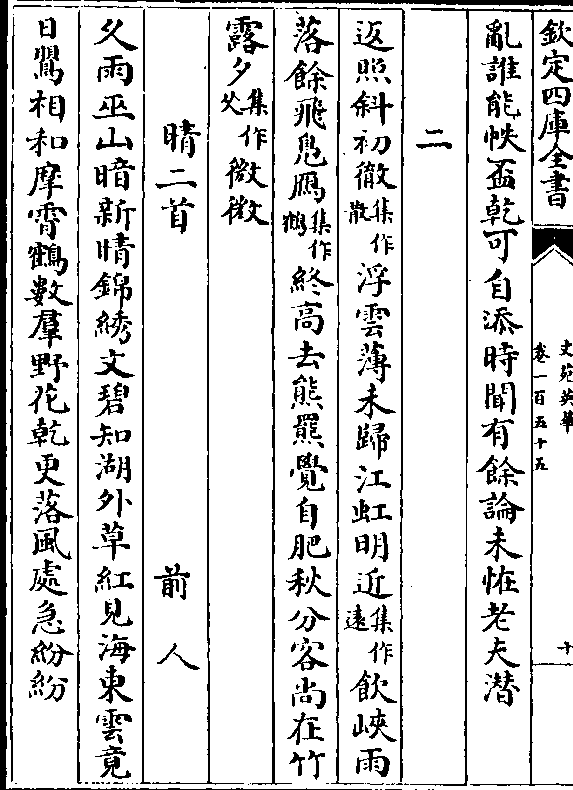 欽定四庫全書
文苑英華
卷一百五十五
十
亂誰能帙盃乾可自添時聞有餘論未恠老夫潜
二
返照斜初徹集作散浮雲薄未歸江虹明近集作遠飲峽雨
落餘飛鳬鴈集作鶴終高去熊羆覺自肥秋分客尚在竹
露夕集作久微微
晴二首 前人
久雨巫山暗新晴錦綉文碧知湖外草紅見海東雲竟
日鸎相和摩霄鶴數羣野花乾更落風處急紛紛